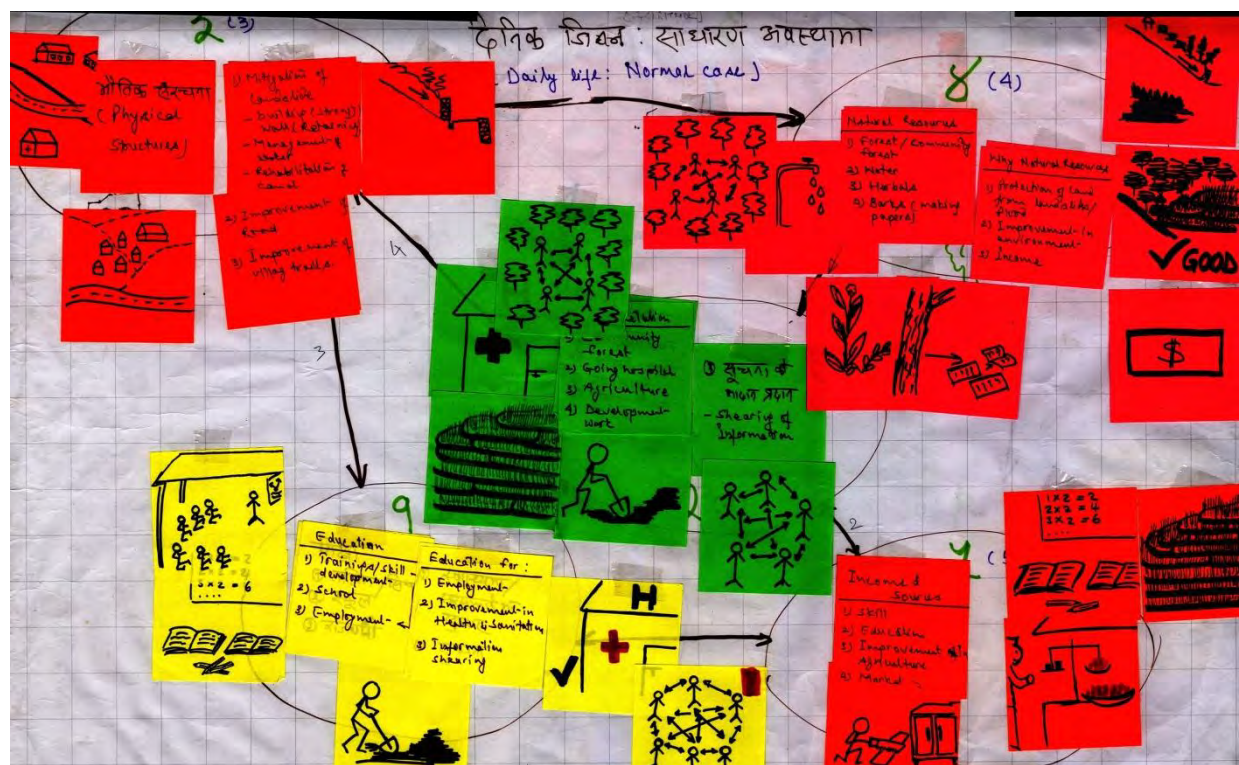 2 (3)
दैनिक जिवन : साधारण अवस्थामा
Daily life: Normal case]
8 (4)
भौतिक संरचना
(Physical
Structures)
1) Mitigation of
Landslide
- buildup (strong)
wall (Retaining
- Management of
water
- Rehabilitation of
canal
2) Improvement of
Road
3) Improvement of
village trails.
Natural Resources
1) Forest/Community
forest
2) Water
3) Herbals
4) Barks (making
papers)
Why Natural Resources
1) Protection of land
from landslide/
flood
2) Improvement in
environment
3) Income
GOOD
$
4
3
forest
2) Going hospital
3) Agriculture
4) Development
work
- Shearing of
Information
9
Education
1) Trainings/skill
development
2) School
3) Employment
Education for :
1) Employment
2) Improvement in
Health & Sanitation
3) Information
shearing
3x2 = 6
....
H
2
Income &
Sources
1) Skill
2) Education
3) Improvement in
Agriculture
4) Market
1x2 = 2
2x2 = 4
3x2 = 6
....